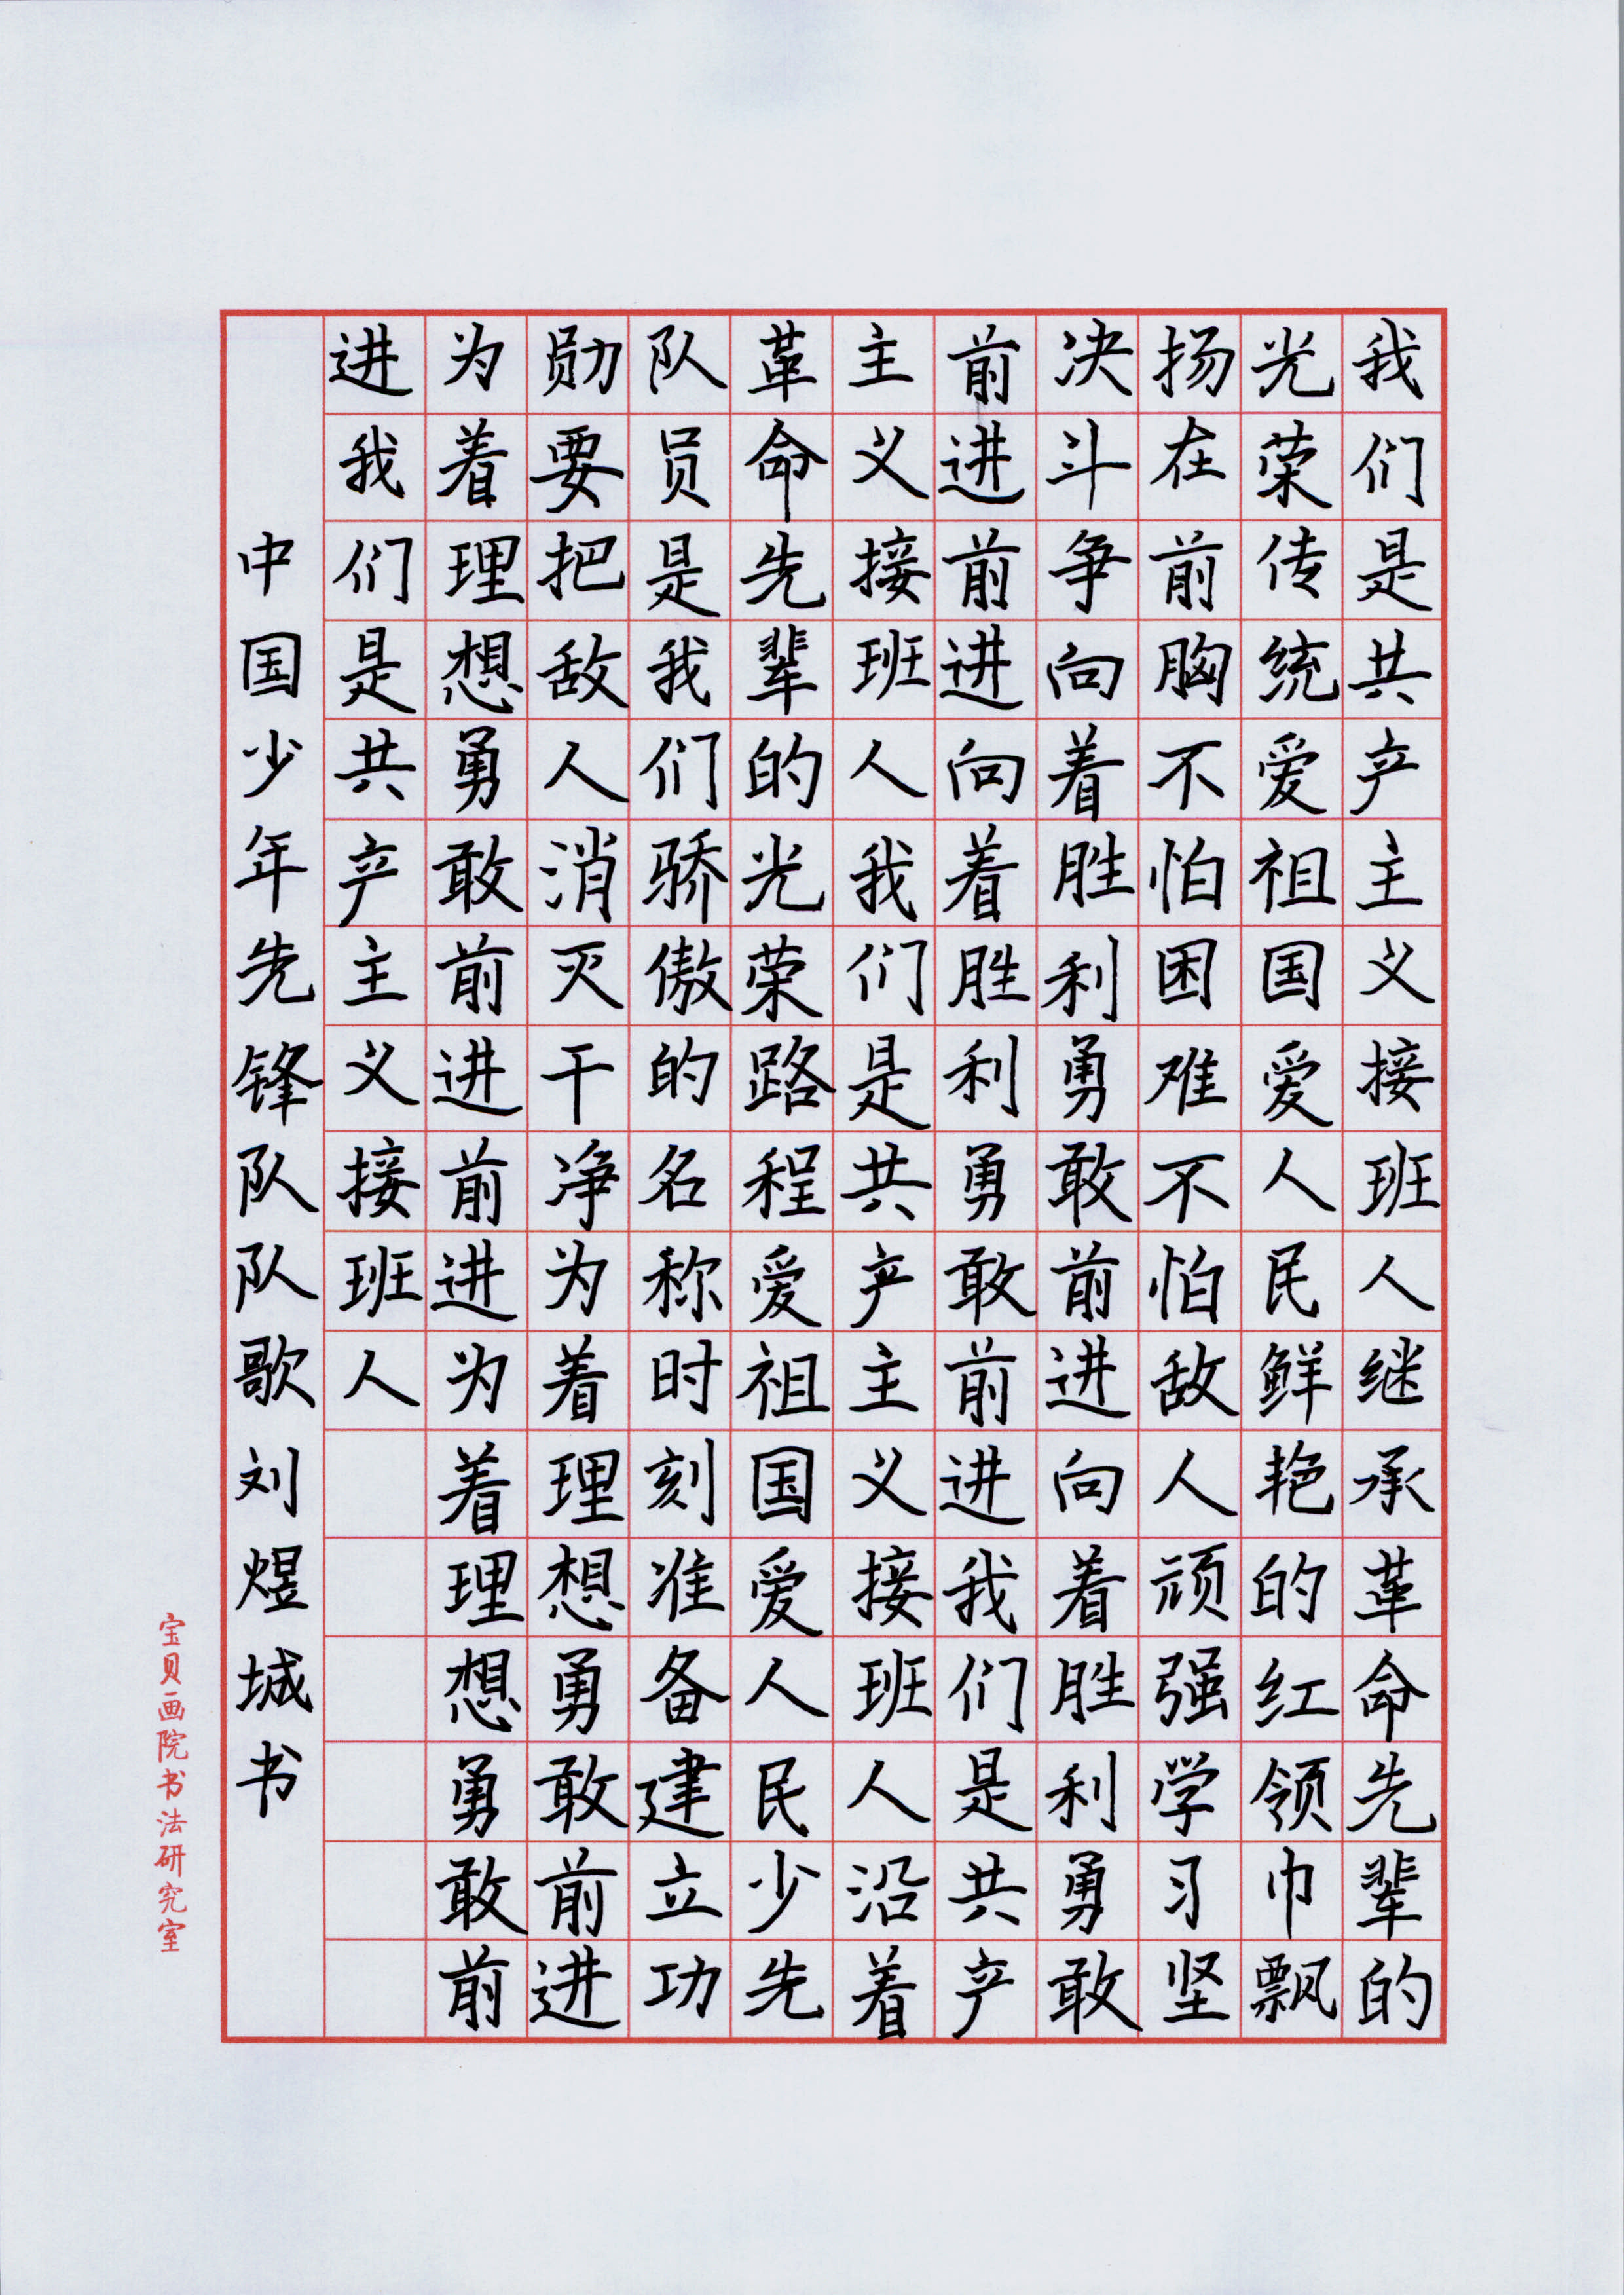 我们是共产主义接班人继承革命先辈的
光荣传统爱祖国爱人民鲜艳的红领巾飘
扬在前胸不怕困难不怕敌人顽强学习坚
决斗争向着胜利勇敢前进向着胜利勇敢
前进前进向着胜利勇敢前进我们是共产
主义接班人我们是共产主义接班人沿着
革命先辈的光荣路程爱祖国爱人民少先
队员是我们骄傲的名称时刻准备建立功
勋要把敌人消灭干净为着理想勇敢前进
为着理想勇敢前进前进为着理想勇敢前
进我们是共产主义接班人
中国少年先锋队队歌刘煜城书
宝贝画院书法研究室